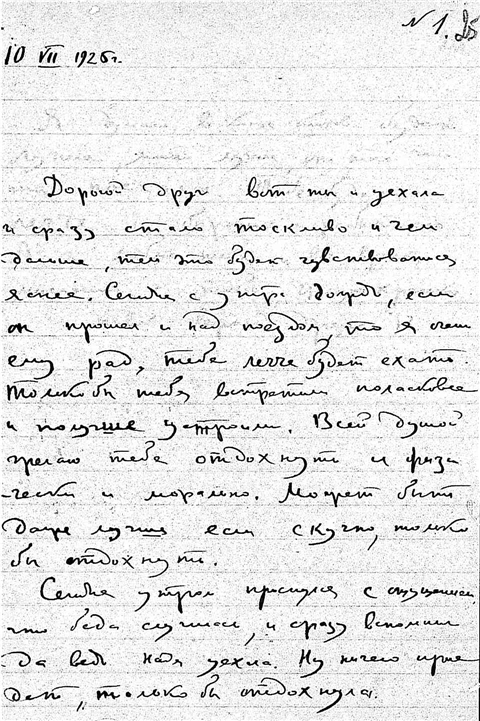 N 1. 25
10 VII 1926 г.
Дорогой друг вот ты и уехала
и сразу стало тоскливо и чем
дальше, тем это будет чувствоваться
яснее. Сегодня с утра дождь, если
он прошел и над поездом, то я очень
ему рад, тебе легче будет ехать.
Только бы тебя встретили поласковее
и получше устроили. Всей душой
желаю тебе отдохнуть и физи
чески и морально. Может быть
даже лучше если скучно, только
бы отдохнуть.
Сегодня утром проснулся с ощущением,
что беда случилась, и сразу вспомнил
да ведь Надя уехла. Ну ничего прие
дет, только бы отдохнула.